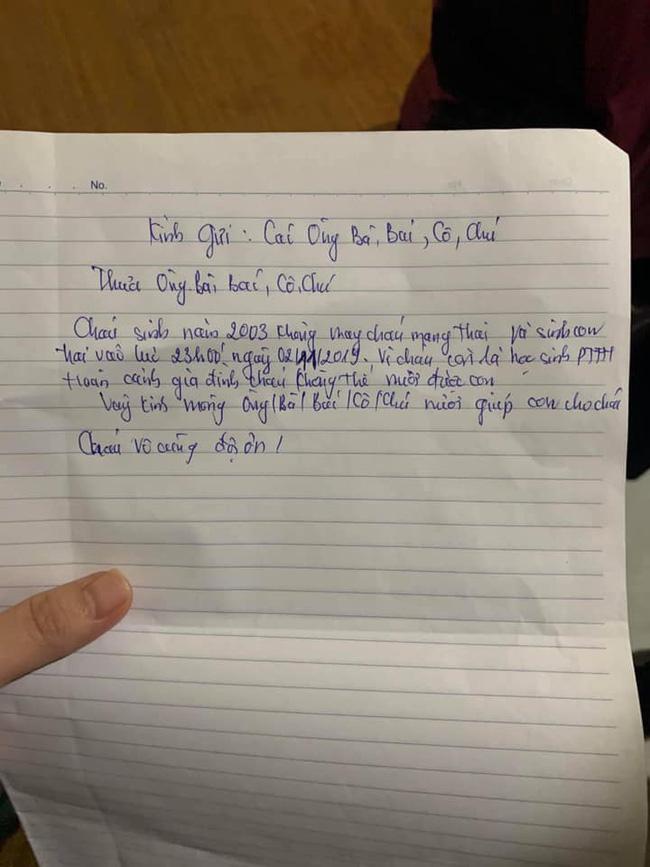 No.
Kính gửi: Các Ông Bà, Bác, Cô, Chú
Thưa Ông Bà, Bác, Cô, Chú
Cháu sinh năm 2003 không may cháu mang thai và sinh con
trai vào lúc 23h00' ngày 02/11/2019. Vì cháu còn là học sinh PTTH
hoàn cảnh gia đình cháu không thể nuôi được con
Vậy kính mong Ông/Bà/Bác/Cô/Chú nuôi giúp con cho cháu
Cháu vô cùng đội ơn!